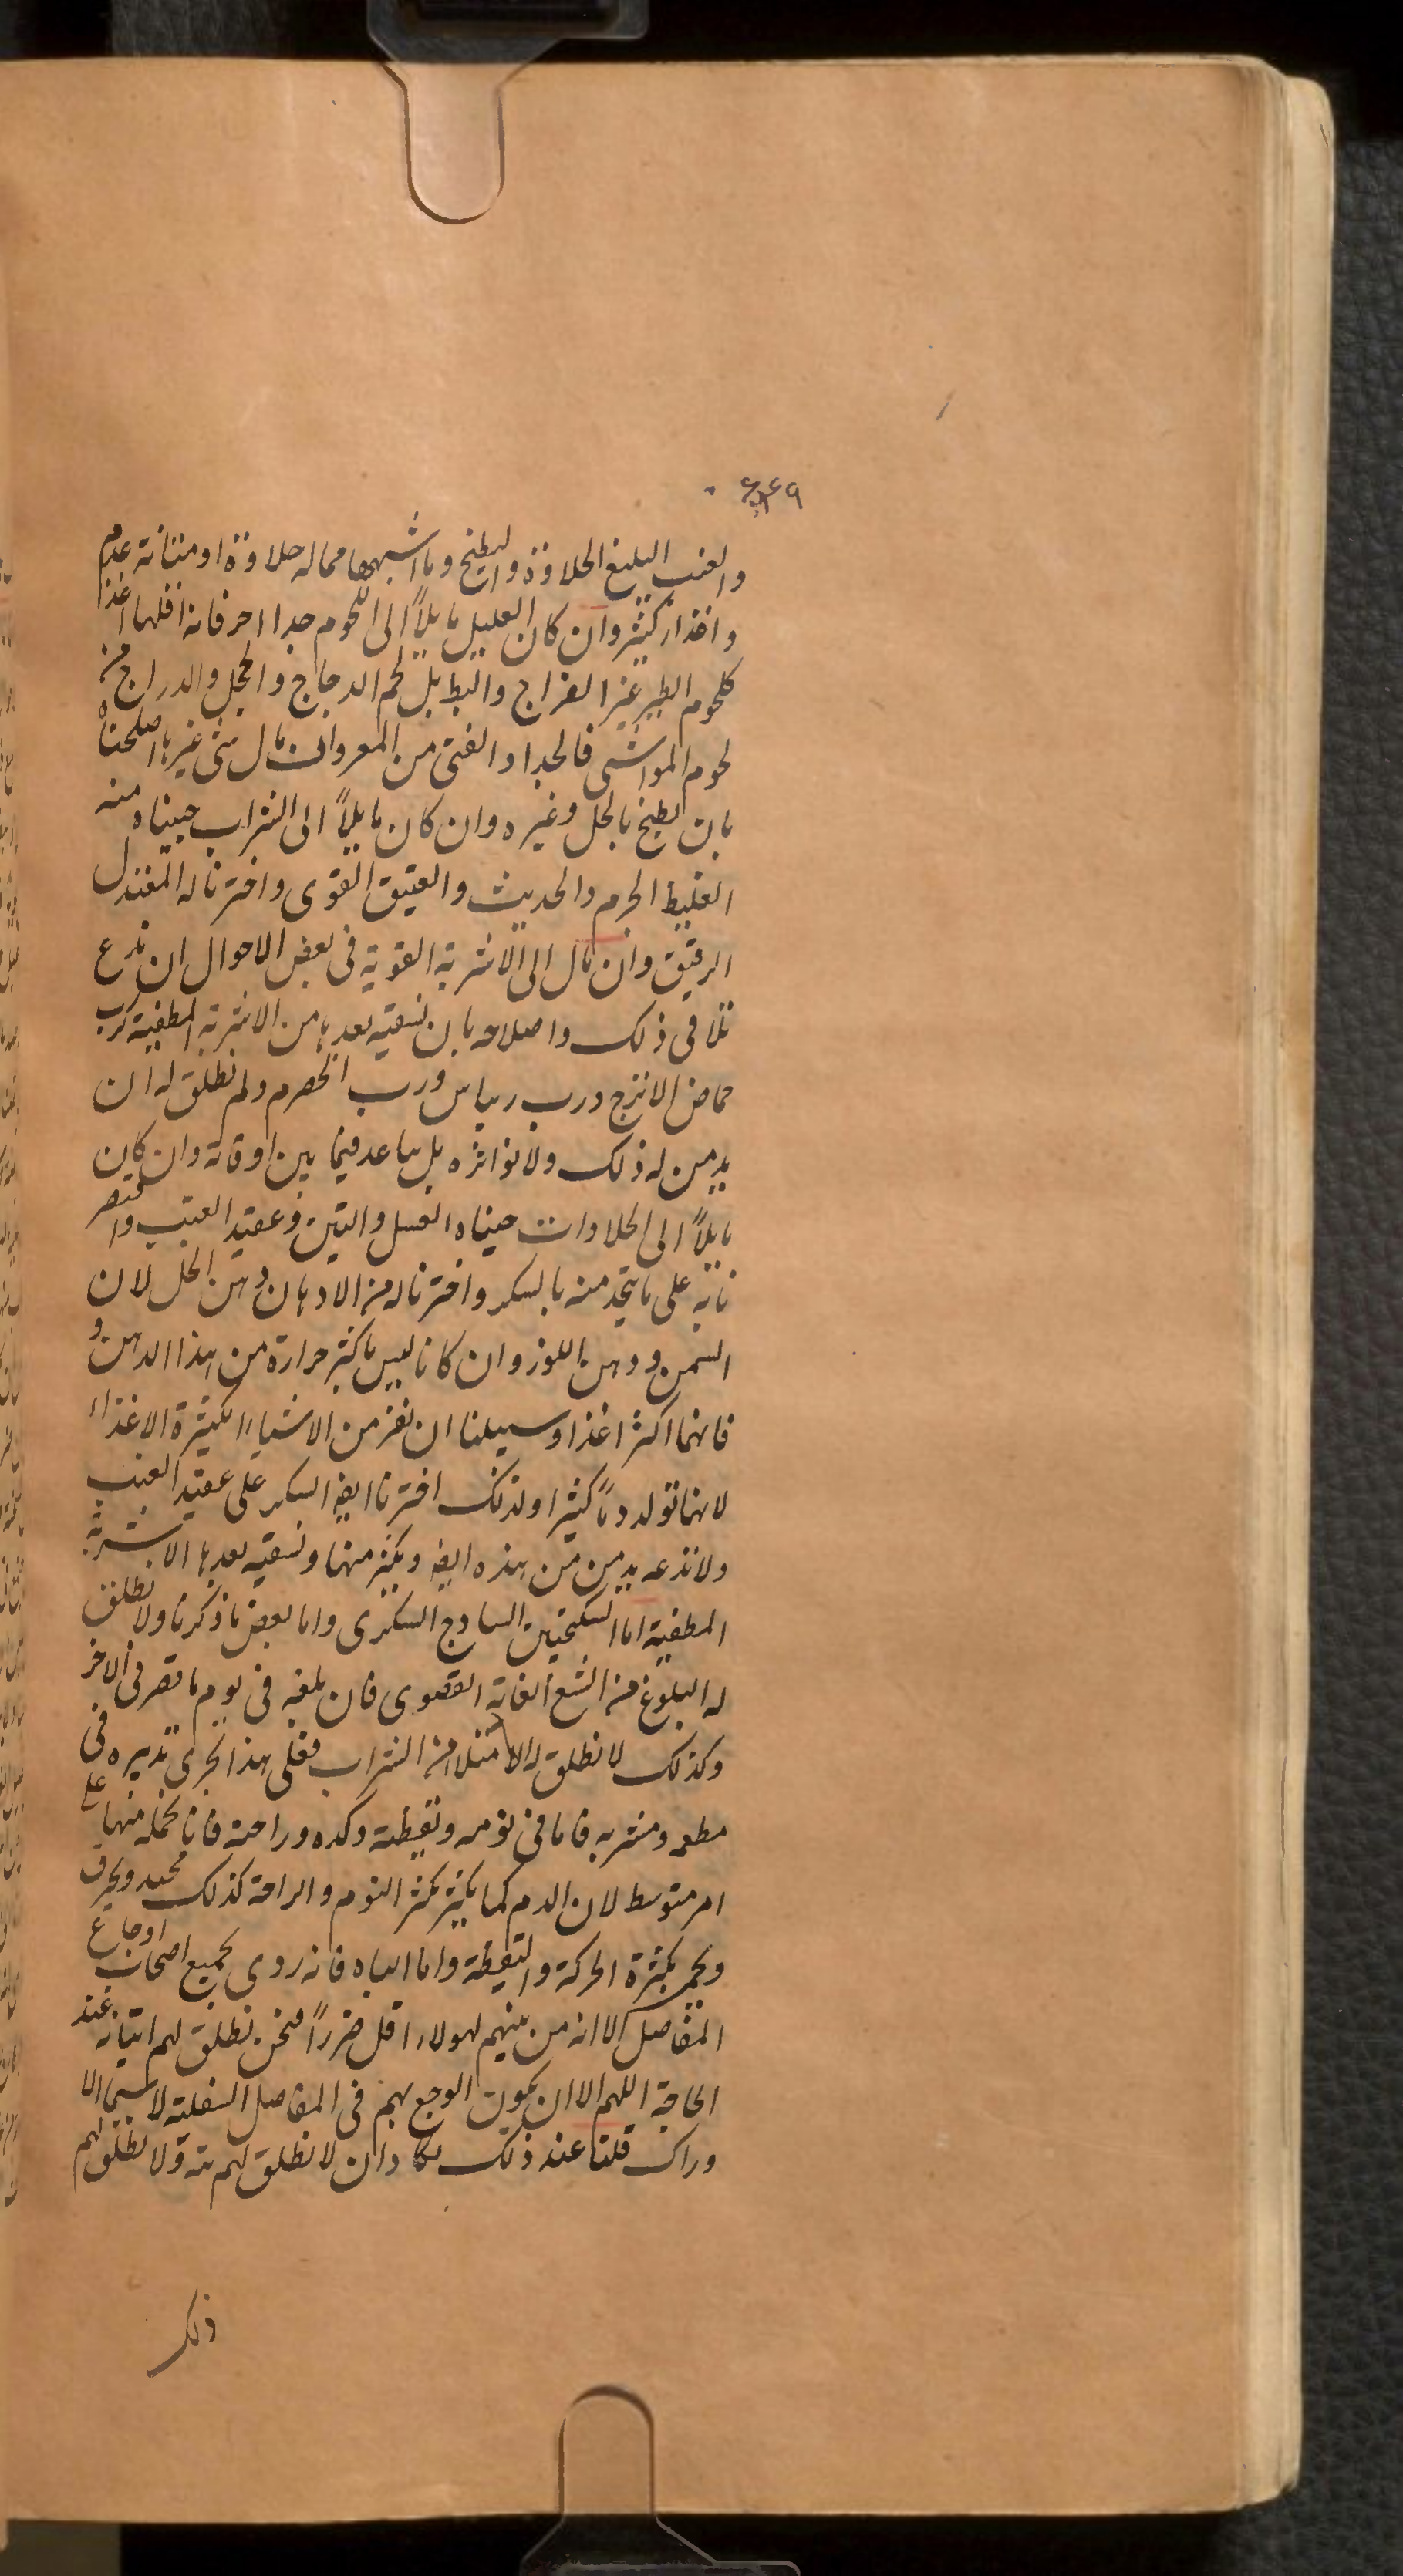 ٦٤٩
والعنب البليغ الحلاوة والبطيخ وما اشبهها مما له حلاوة او متانة عدم
واغذاء كثير وان كان العليل مايلاً الى اللحوم جدا فانه اقلها اغذا
كلحوم الطير غير الفراخ والبط بل لحم الدجاج والحجل والدراج من
لحوم المواشى فالجدا والفتى من المعز وان مال شى غيرها اصلحناه
بان يطبخ بالخل وغيره وان كان مايلاً الى الشراب جنبناه منه
الغليظ الجرم والحديث والعتيق القوى واخترنا له المعتدل
الرقيق وان مال الى الاشربة القوية فى بعض الاحوال ان ندع
تلافى ذلك واصلاحه بان نسقيه بعدها من الاشربة المطفية كرب
حماض الاترج ورب ريباس ورب الحصرم ولم نطلق له ان
يدمن له ذلك ولا يواتره بل يباعد فيما بين اوقاته وان كان
مايلاً الى الحلاوات جنبناه العسل والتين وعقيد العنب واقتصر
نابه على ما يتخذ منه بالسكر واخترنا له من الادهان دهن الخل لان
السمن ودهن اللوز وان كانا ليس باكثر حرارة من هذا الدهن و
فانهما اكثر اغذا وسبيلنا ان نفر من الاشياء الكثيرة الاغذاء
لانها تولد دماً كثيرا ولذلك اخترنا ايضا السكر على عقيد العنب
ولا ندعه يدمن من هذه ايضا ويكثر منها ونسقيه بعدها الاشربة
المطفية اما السكنجبين الساذج السكرى واما بعض ما ذكرنا ولا نطلق
له البلوغ من الشبع الغاية القصوى فان بلغه فى يوم ما قصر فى الاخر
وكذلك لا نطلق له الامتلا من الشراب فعلى هذا يجرى تدبيره فى
مطعمه ومشربه فاما فى نومه ويقظته وكده وراحته فانا نحمله منها على
امر متوسط لان الدم كما يكثر بكثر النوم والراحة كذلك يحتد ويحرق
ويحمى بكثرة الحركة واليقظة واما الباه فانه ردى لجميع اصحاب اوجاع
المفاصل الا انه من بينهم لهولاء اقل ضرراً فنحن نطلق لهم اتيانه عند
الحاجة اللهم الا ان يكون الوجع بهم فى المفاصل السفلية لا سيما الا
وراك قلنا عند ذلك نكاد ان لا نطلق لهم بتة ولا نطلق لهم
ذلك